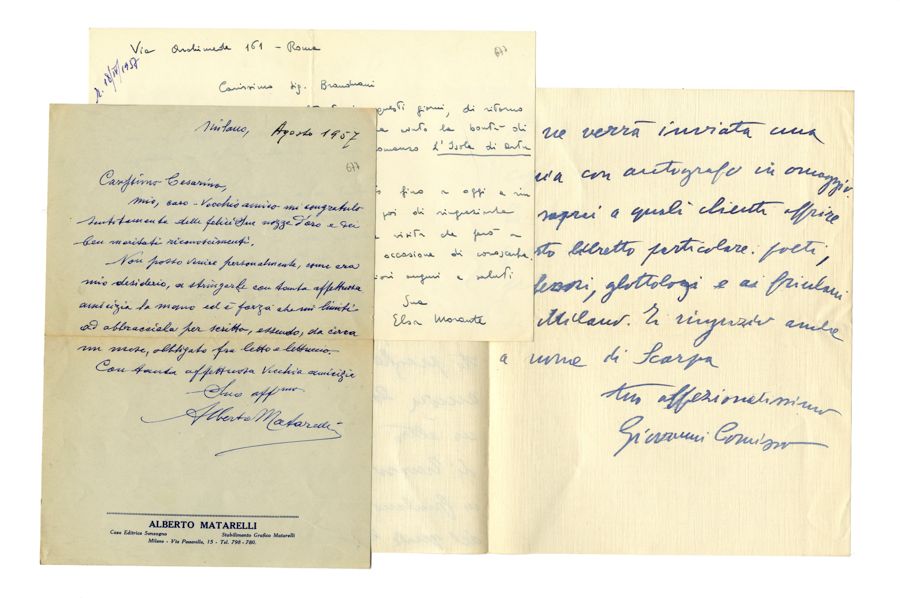 Via Archimede 161 - Roma
677
Carissimo Sig. Branduani
questi giorni, di ritorno
la bontà di
romanzo L'Isola di Artu
fino a oggi a rin
poi di ringraziarla
visita che però a
occasione di conoscerla.
auguri e saluti
Sua
Elsa Morante
Milano, Agosto 1957
677
Carissimo Cesarino,
mio, caro - Vecchio amico mi congratulo
tantamente delle felici Sue nozze d'oro e dei
ben meritati riconoscimenti.
Non posso venire personalmente, come era
mio desiderio, a stringerle con tanta affettuosa
amicizia la mano ed è forza che mi limiti
ad abbracciarla per scritto, essendo, da circa
un mese, obbligato fra letto e lettuccio.
Con tanta affettuosa Vecchia amicizia
Suo aff.mo
Alberto Matarelli
ALBERTO MATARELLI
Casa Editrice Sonzogno Stabilimento Grafico Matarelli
Milano - Via Passarella, 15 - Tel. 798-780.
ne verrà inviata una
con autografo in omaggio
saprai a quali clienti offrire
libretto particolare: poeti,
glottologi e ai friulani
Milano. Ti ringrazio anche
a nome di Scarpa
tuo affezionatissimo
Giovanni Comisso